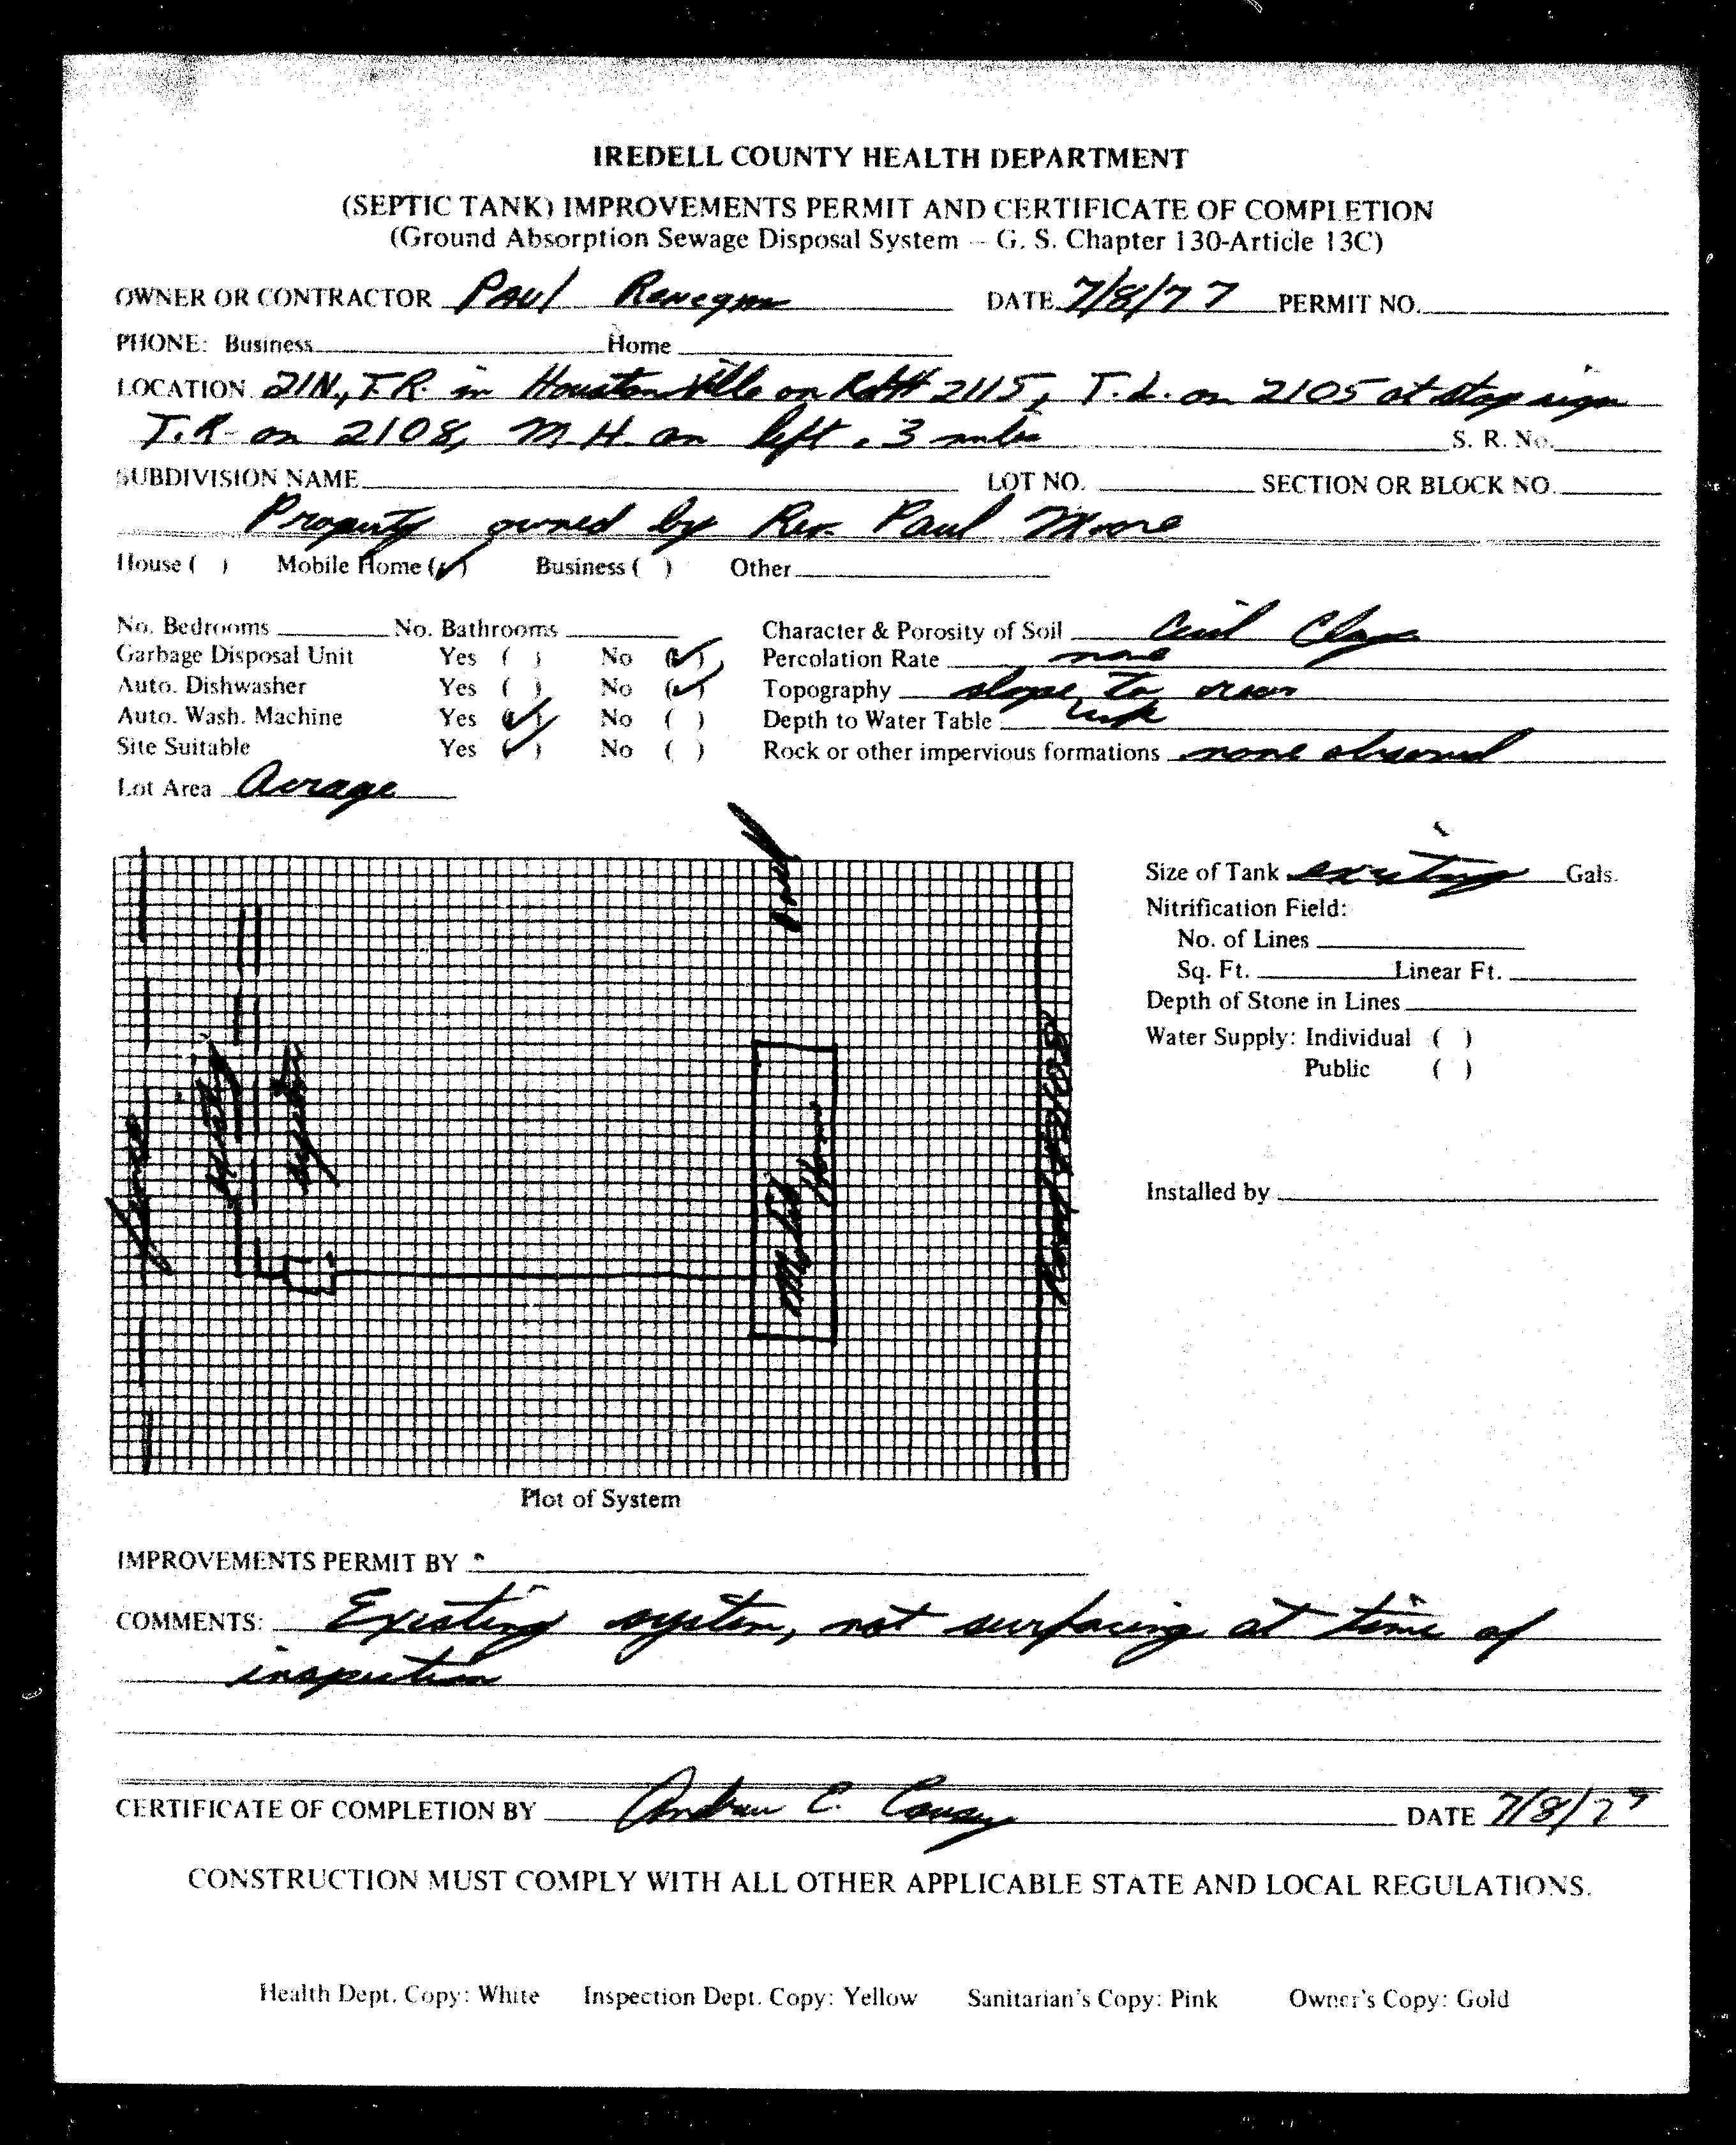 IREDELL COUNTY HEALTH DEPARTMENT
(SEPTIC TANK) IMPROVEMENTS PERMIT AND CERTIFICATE OF COMPLETION
(Ground Absorption Sewage Disposal System -- G. S. Chapter 130-Article 13C)
OWNER OR CONTRACTOR Paul DATE 7/8/77 PERMIT NO.
PHONE: Business Home
LOCATION 21N, T.R. in Houstonville on Rd# 2115, T.L. on 2105 at stop sign
T.R. on 2108, M.H. on left .3 miles S. R. No.
SUBDIVISION NAME LOT NO. SECTION OR BLOCK NO.
Property owned by Rev. Paul Moore
House ( ) Mobile Home (✓) Business ( ) Other
No. Bedrooms No. Bathrooms Character & Porosity of Soil Cecil Clay
Garbage Disposal Unit Yes ( ) No (✓) Percolation Rate none
Auto. Dishwasher Yes ( ) No (✓) Topography slope to rear
Auto. Wash. Machine Yes (✓) No ( ) Depth to Water Table unk
Site Suitable Yes (✓) No ( ) Rock or other impervious formations none observed
Lot Area Acrage
Size of Tank existing Gals.
Nitrification Field:
No. of Lines
Sq. Ft. Linear Ft.
Depth of Stone in Lines
Water Supply: Individual ( )
Public ( )
Installed by
fence
existing
system
Mobile
Home
Road
Road #2108
Plot of System
IMPROVEMENTS PERMIT BY
COMMENTS: Existing system, not surfacing at time of
inspection
CERTIFICATE OF COMPLETION BY Andrew C. Causey DATE 7/8/77
CONSTRUCTION MUST COMPLY WITH ALL OTHER APPLICABLE STATE AND LOCAL REGULATIONS.
Health Dept. Copy: White Inspection Dept. Copy: Yellow Sanitarian's Copy: Pink Owner's Copy: Gold